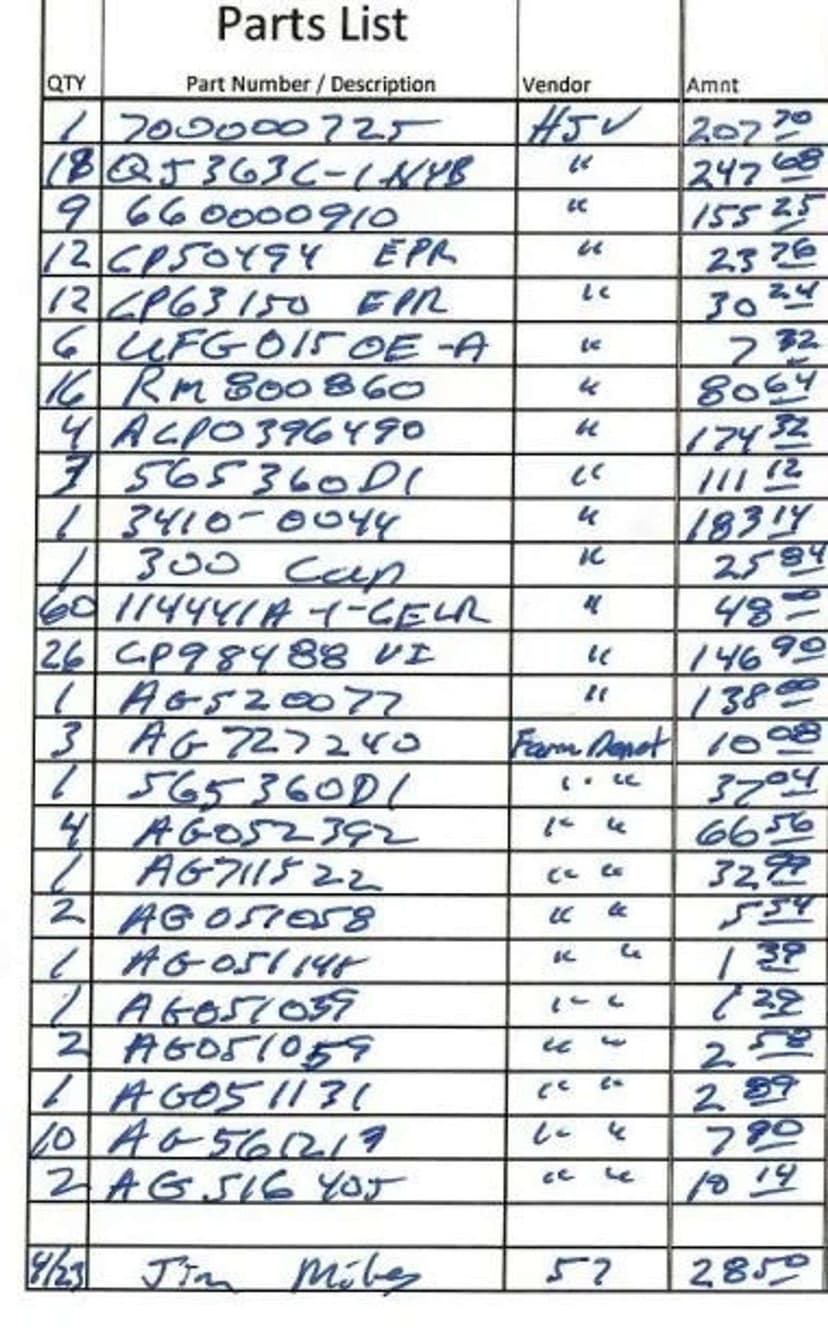 Parts List
QTY Part Number / Description Vendor Amnt
1 700000725 HJV 207 70
18 QJ5363C-1NYB " 247 68
9 660000910 " 155 25
12 CP50494 EPR " 23 76
12 CP63150 EPR " 30 24
6 UFG0150E-A " 7 32
16 RM800860 " 80 64
4 ACP0396490 " 174 32
7 565360D1 " 111 12
1 3410-0044 " 183 14
1 300 Cap " 25 84
60 114441A-1-CELR " 48 00
26 CP98488 VI " 146 90
1 AG520077 " 138 00
3 AG727240 Farm Depot 10 08
1 565360D1 " " 37 04
4 AG052392 " " 66 56
1 AG711522 " " 32 99
2 AG051058 " " 5 54
1 AG051148 " " 1 39
1 AG051039 " " 1 29
2 AG051059 " " 2 58
1 AG051131 " " 2 89
10 AG561219 " " 7 90
2 AG516405 " " 10 14
4/23 Jim 57 285 0